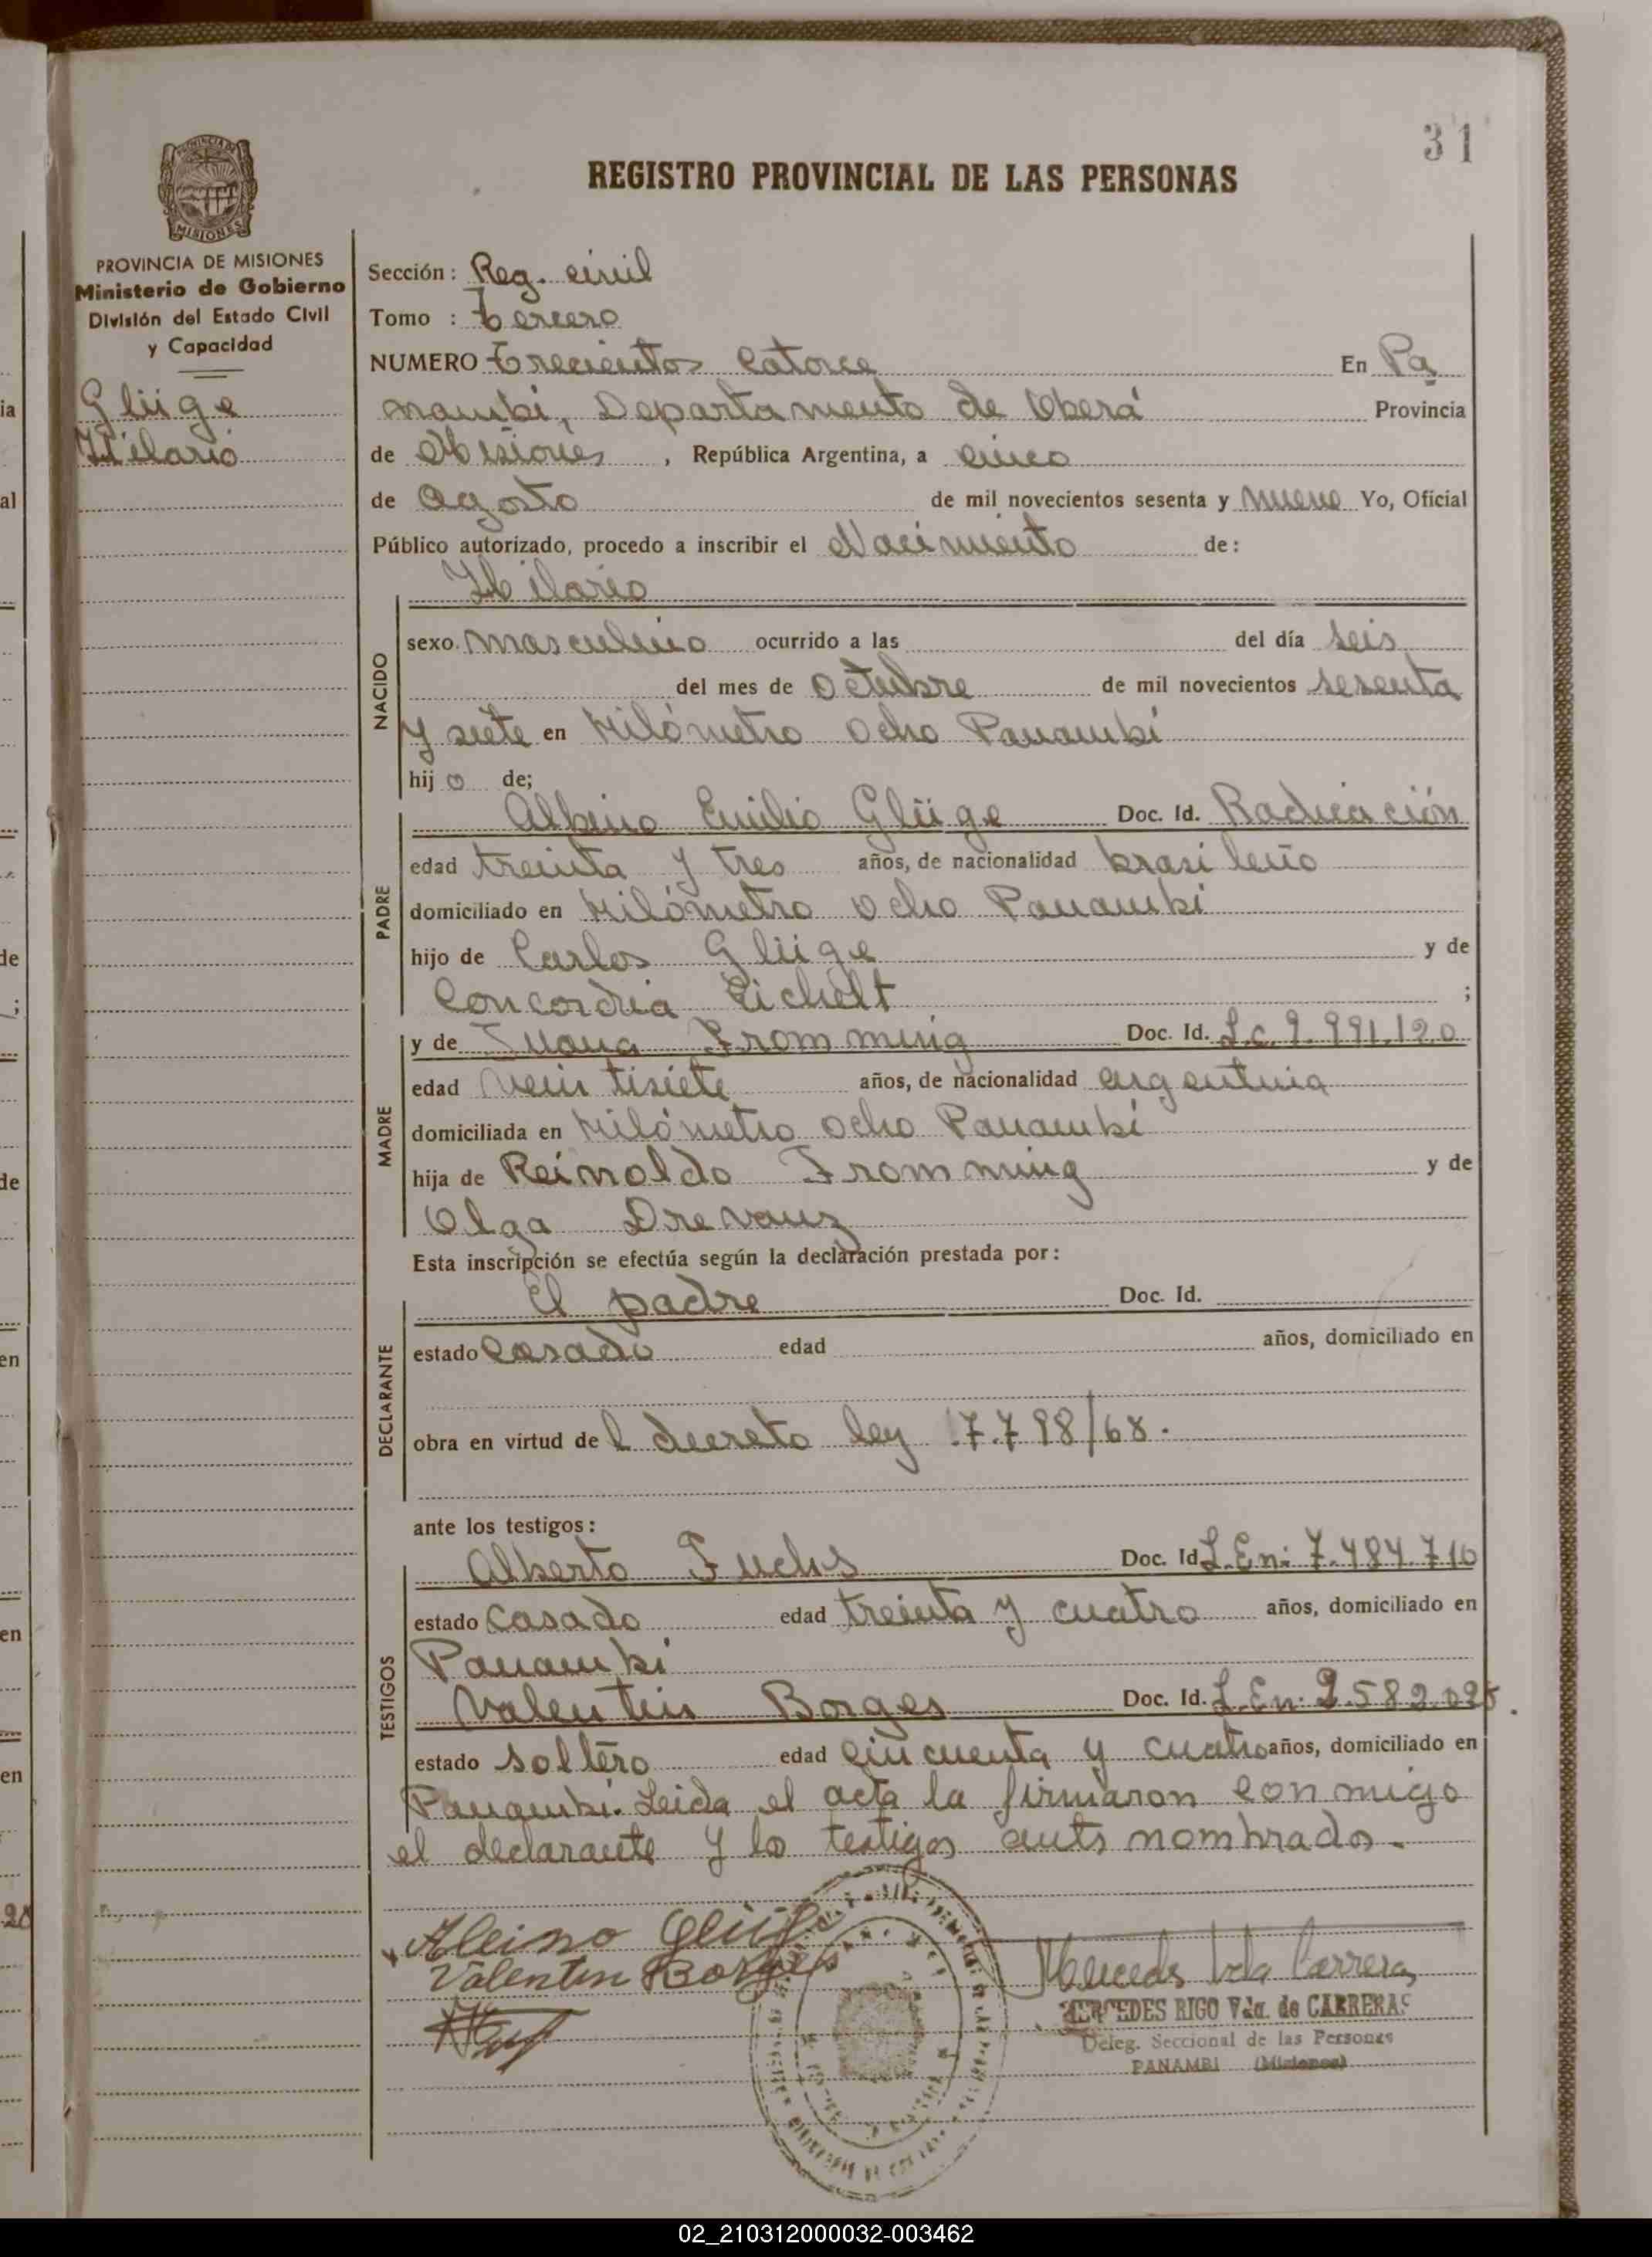 31
REGISTRO PROVINCIAL DE LAS PERSONAS
PROVINCIA DE
MISIONES
PROVINCIA DE MISIONES
Ministerio de Gobierno
División del Estado Civil
y Capacidad
Glüge
Hilario
Sección: Reg. civil
Tomo : tercero
NUMERO trecientos catorce En Pa
nambi, Departamento de Oberá Provincia
de Misiones, República Argentina, a cinco
de agosto de mil novecientos sesenta y nueve Yo, Oficial
Público autorizado, procedo a inscribir el Nacimiento de:
Hilario
NACIDO
sexo masculino ocurrido a las del día seis
del mes de octubre de mil novecientos sesenta
y siete en Kilómetro ocho Panambí
hijo de;
PADRE
Albino Emilio Glüge Doc. Id. Radicación
edad treinta y tres años, de nacionalidad brasileño
domiciliado en Kilómetro ocho Panambí
hijo de Carlos Glüge y de
Concordia Eichelt ;
MADRE
y de Juana Fromming Doc. Id. L.c. 9.991.120
edad veintisiete años, de nacionalidad argentina
domiciliada en Kilómetro ocho Panambí
hija de Reinoldo Fromming y de
Olga Drevanz
Esta inscripción se efectúa según la declaración prestada por:
DECLARANTE
El padre Doc. Id.
estado casado edad años, domiciliado en
obra en virtud del decreto ley 17.798/68.
ante los testigos:
TESTIGOS
Alberto Fuchs Doc. Id L.En: 7.484.710
estado casado edad treinta y cuatro años, domiciliado en
Panambí
Valentin Borges Doc. Id. L.En: 2.582.025.
estado soltero edad cincuenta y cuatro años, domiciliado en
Panambi. Leida el acta la firmaron conmigo
el declarante y lo testigos ants nombrados.
Albino Glüge
Valentin Borges
Mercedes Vda Carreras
MERCEDES RIGO Vda. de CARRERAS
Deleg. Seccional de las Personas
PANAMBI (Misiones)
ia
al
de
;
de
en
en
en
20
02_210312000032-003462